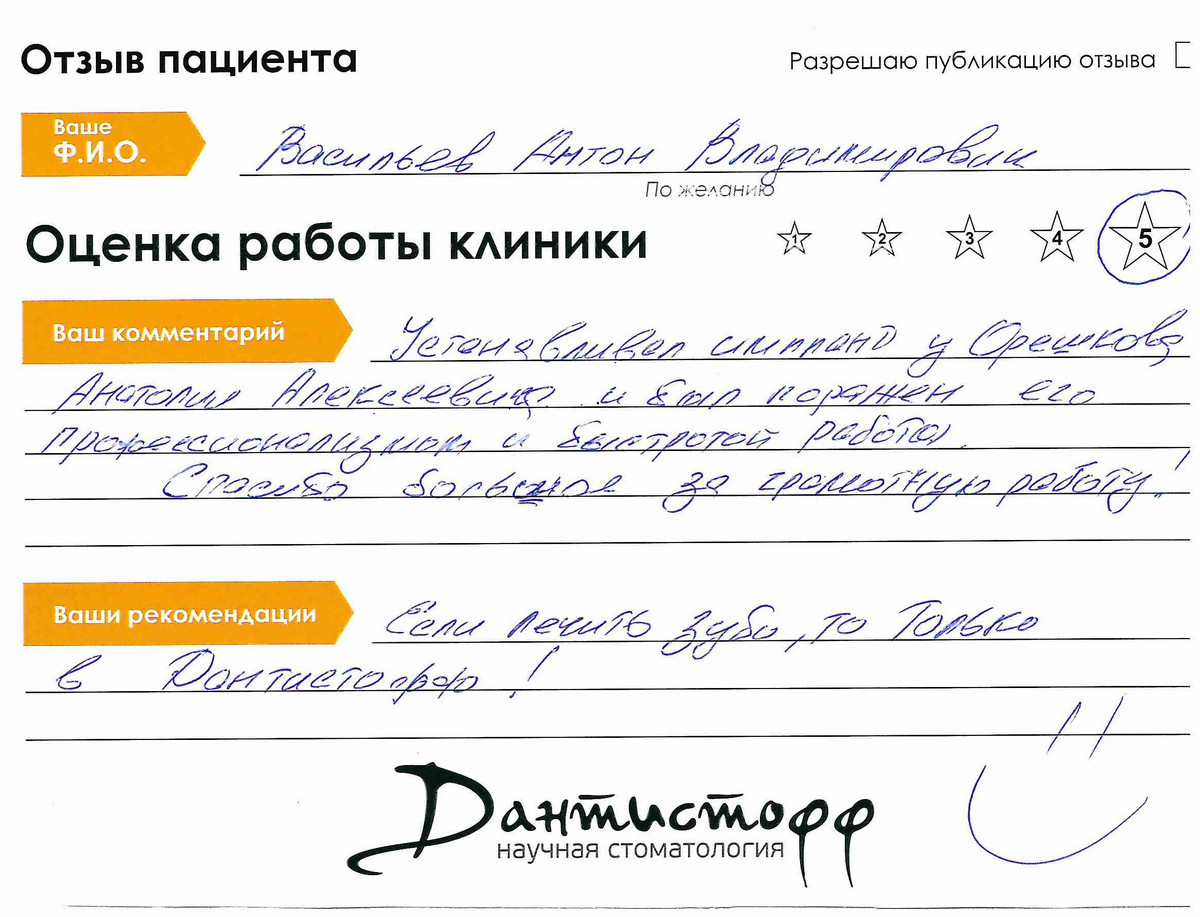 Отзыв пациента
Разрешаю публикацию отзыва
Ваше
Ф.И.О.
Васильев Антон Владимирович
По желанию
Оценка работы клиники
1 2 3 4 5
Ваш комментарий
Устанавливал имплант у Орешкова
Анатолия Алексеевича и был поражен его
профессионализмом и быстротой работы.
Спасибо большое за грамотную работу!
Ваши рекомендации
Если лечить зубы, то только
в Дантистофф!
Дантистофф
научная стоматология